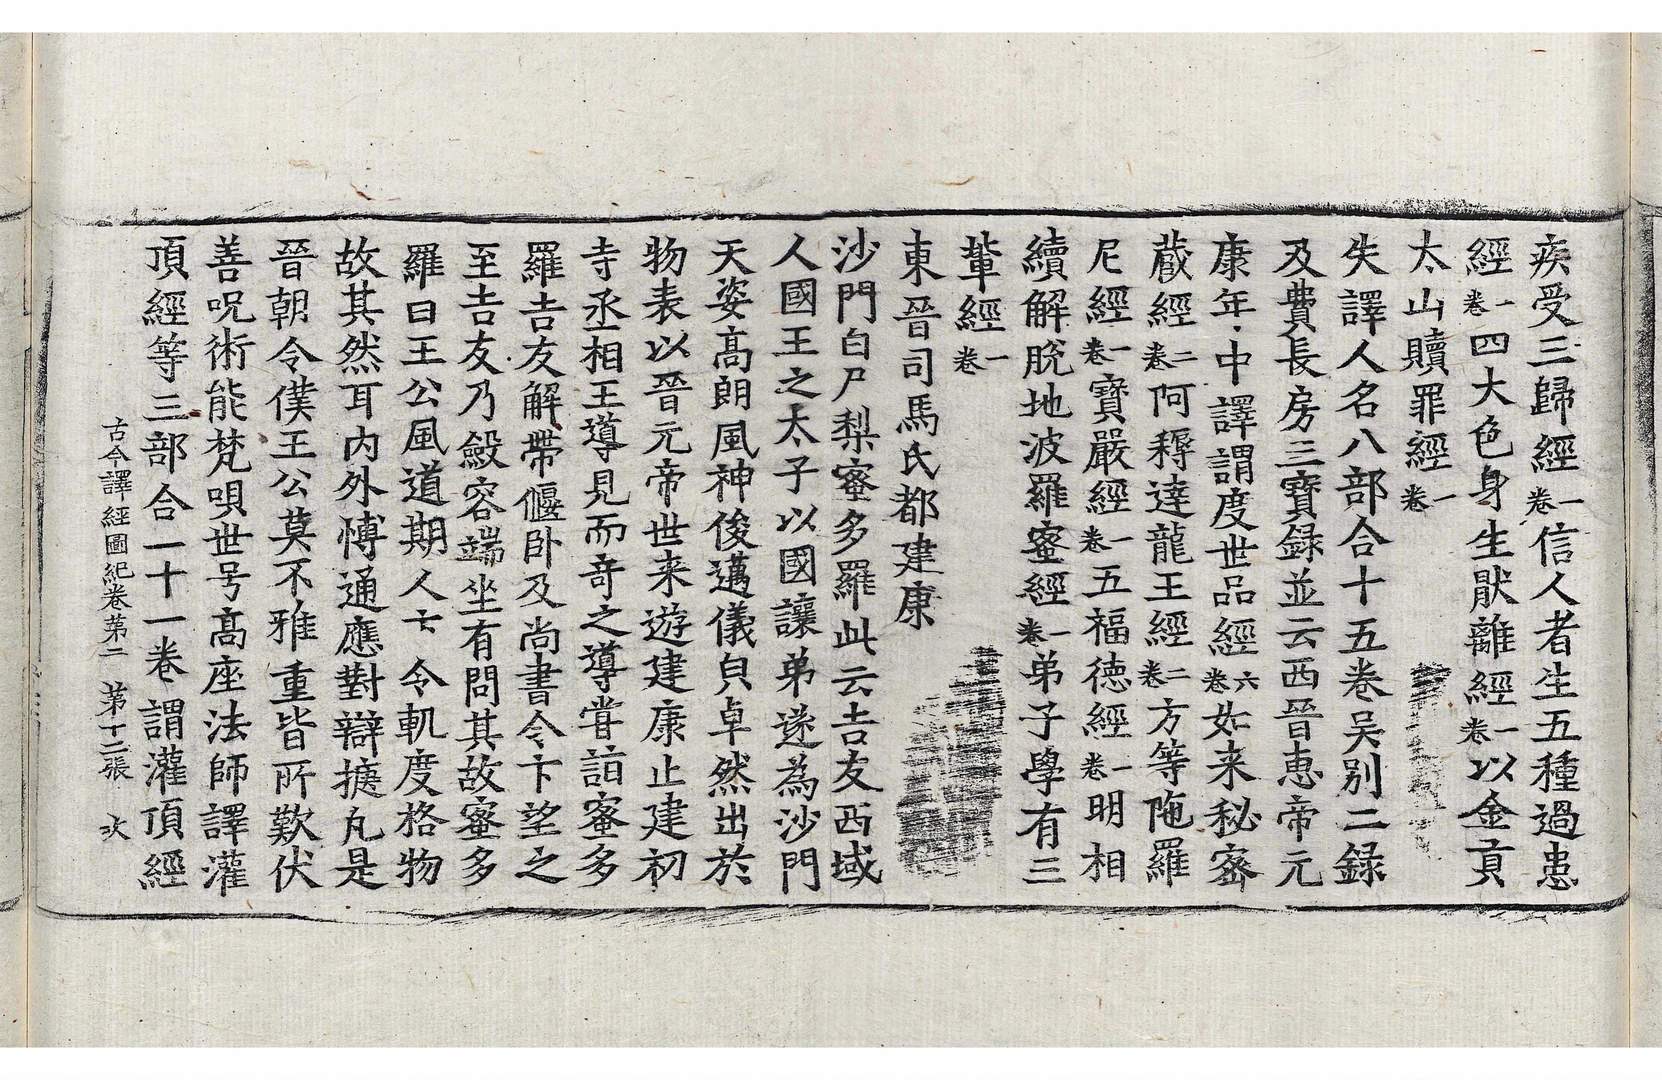 疾受三歸經一卷信人者生五種過患
經一卷四大色身生猒離經一卷以金貢
太山贖罪經一卷
失譯人名八部合十五卷吴别二録
及費長房三寶録並云西晉恵帝元
康年中譯謂度世品經六卷如来秘密
蔵經二卷阿耨達龍王經二卷方等陁羅
尼經一卷寶嚴經一卷五福德經一卷明相
續解脫地波羅蜜經一卷弟子學有三
軰經一卷
東晉司馬氏都建康
沙門白尸梨蜜多羅此云吉友西域
人國王之太子以國讓弟遂為沙門
天姿髙朗風神俊邁儀皃卓然出於
物表以晉元帝世来遊建康止建初
寺丞相王導見而奇之導甞詣蜜多
羅吉友解帶偃卧及尚書令卞望之
至吉友乃斂容端坐有問其故蜜多
羅曰王公風道期人卞令軌度格物
故其然耳内外愽通應對辯捷凡是
晉朝令僕王公莫不雅重皆所歎伏
善呪術能梵唄世号髙座法師譯灌
頂經等三部合一十一卷謂灌頂經
古今譯經圖紀卷第二 第十二張 次